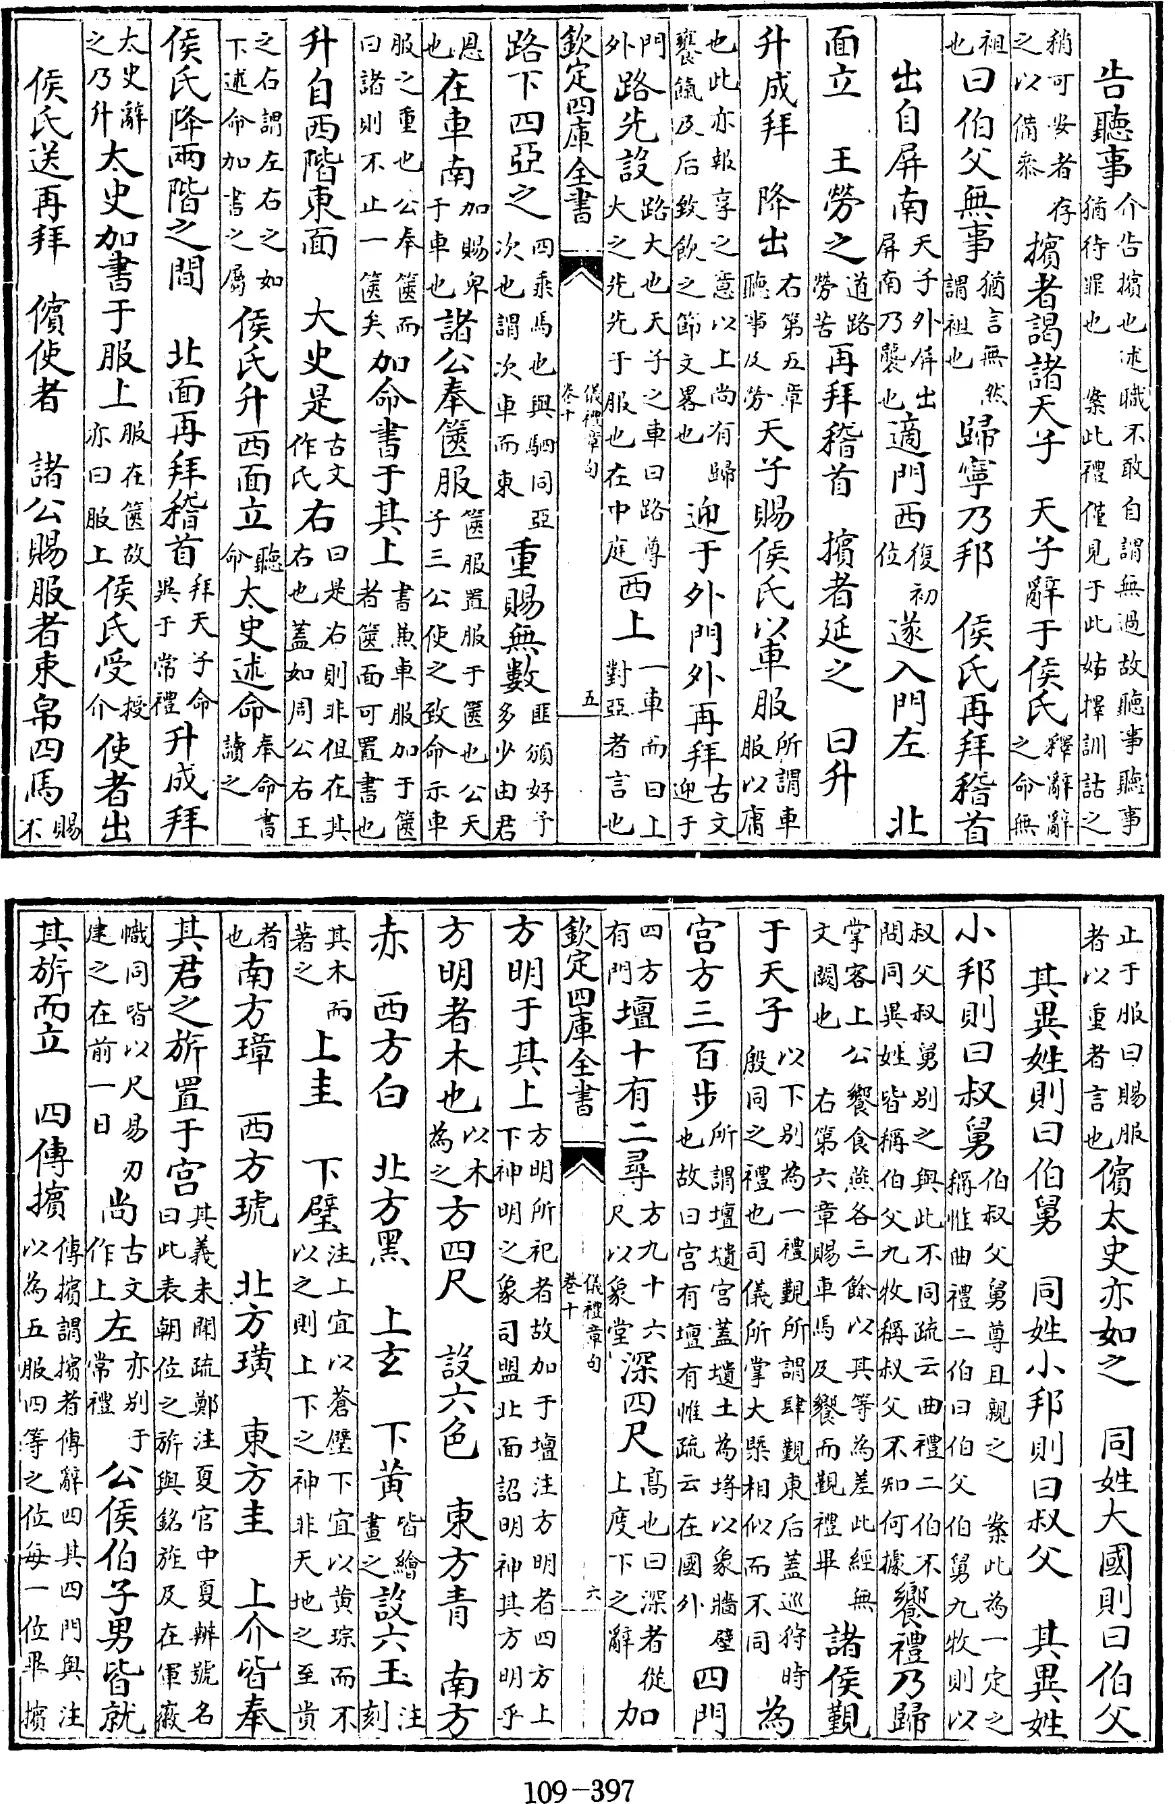 告聽事介告擯也述職不敢自謂無過故聽事聽事猶待罪也　案此禮僅見于此姑擇訓詁之
稍可安者存之以備叅擯者謁諸天子　天子辭于侯氏釋辭辭之命無
祖也曰伯父無事猶言無然謂祖也歸寧乃邦　侯氏再拜稽首
出自屏南天子外屏出屏南乃襲也適門西復初位遂入門左　北
面立　王勞之道路勞苦再拜稽首　擯者延之　曰升
升成拜　降出右第五章聽事及勞天子賜侯氏以車服所謂車服以庸
也此亦報享之意以上尚有歸饔餼及后致飲之節文畧也　迎于外門外再拜古文迎于
門外路先設路大也天子之車曰路尊大之先先于服也在中庭西上一車而曰上對亞者言也
欽定四庫全書　儀禮章句　卷十　五
路下四亞之四乘馬也與駟同亞次也謂次車而東重賜無數匪頒好予多少由君
恩也在車南加賜卑于車也諸公奉篋服篋服置服于篋也公天子三公使之致命示車
服之重也公奉篋而曰諸則不止一篋矣加命書于其上書兼車服加于篋者篋面可置書也
升自西階東面　大史是古文作氏右曰是右則非但在其右也蓋如周公右王
之右謂左右之如下述命加書之屬侯氏升西面立聽命太史述命奉命書讀之
侯氏降兩階之間　北面再拜稽首拜天子命異于常禮升成拜
太史辭之乃升太史加書于服上服在篋故亦曰服上侯氏受授介使者出
侯氏送再拜　儐使者　諸公賜服者束帛四馬賜不
止于服曰賜服者以重者言也儐太史亦如之　同姓大國則曰伯父
其異姓則曰伯舅　同姓小邦則曰叔父　其異姓
小邦則曰叔舅伯叔父舅尊且親之稱惟曲禮二伯曰伯父　案此為一定之伯舅九牧則以
叔父叔舅別之與此不同疏云曲禮二伯不問同異姓皆稱伯父九牧稱叔父不知何據饗禮乃歸
掌客上公饗食燕各三餘以其等為差此經無文闕也　右第六章賜車馬及饗而覲禮畢　諸侯覲
于天子以下別為一禮覲所謂肆覲東后蓋巡狩時殷同之禮也司儀所掌大槩相似而不同為
宮方三百步所謂壇壝宮蓋壝土為埒以象牆壁也故曰宮有壇有帷疏云在國外四門
四方有門壇十有二尋方九十六尺以象堂深四尺高也曰深者從上度下之辭加
欽定四庫全書　儀禮章句　卷十　六
方明于其上方明所祀者故加于壇注方明者四方上下神明之象司盟北面詔明神其方明乎
方明者木也以木為之方四尺　設六色　東方青　南方
赤　西方白　北方黑　上玄　下黃皆繪畫之設六玉注刻
其木而著之上圭　下璧注上宜以蒼璧下宜以黃琮而不以之則上下之神非天地之至貴
者也南方璋　西方琥　北方璜　東方圭　上介皆奉
其君之旂置于宮其義未聞疏鄭注夏官中夏辨號名曰此表朝位之旂與銘旌及在軍徽
幟同皆以尺易刃建之在前一日尚古文作上左亦別于常禮　公侯伯子男皆就
其旂而立　四傳擯傳擯謂擯者傳辭四其四門與注以為五服四等之位每一位畢擯
109-397